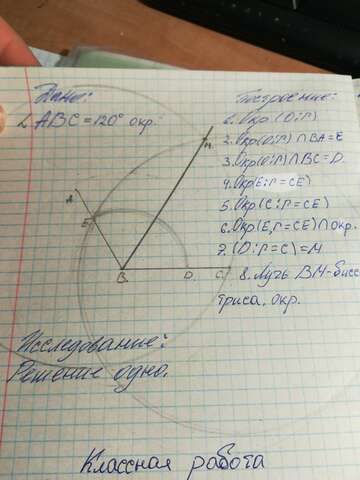 Дано:
∠ABC = 120° окр.
Построение:
1. Окр (O; r)
2. Окр(O;r) ∩ BA = E
3. Окр(O;r) ∩ BC = D.
4. Окр(E; r = CE)
5. Окр(C; r = CE)
6. Окр(E, r = CE) ∩ окр.
7. (D; r = C) = M
8. Луч BM - бисс
триса, окр.
M
A
E
B
D
C
Исследование:
Решение одно.
Классная работа